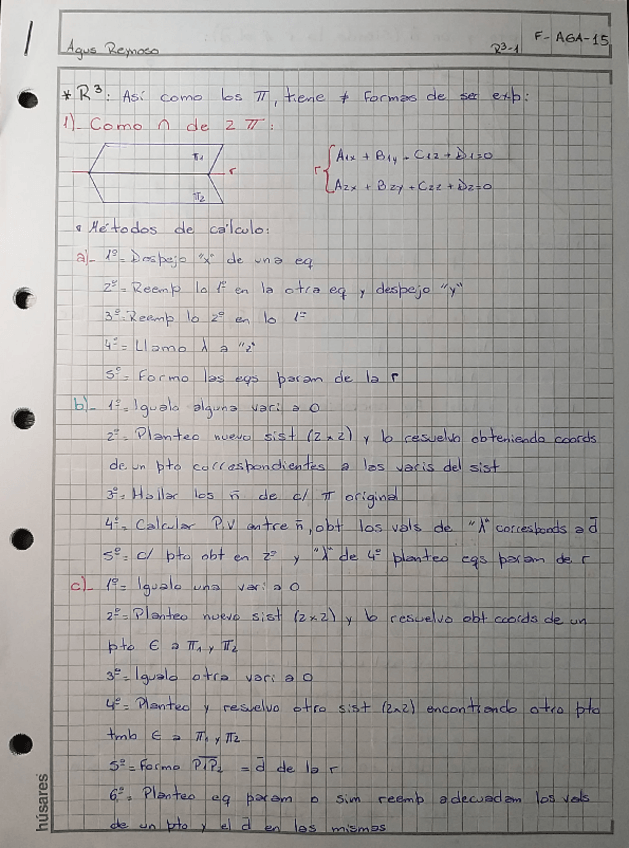 F-AGA-15
Agus Reynoso
R3-1
* R³: Así como los π, tiene ≠ formas de ser exp:
1)- Como ∩ de 2 π:
π1
r
π2
r { A1x + B1y + C1z + D1=0
A2x + B2y + C2z + D2=0
• Métodos de cálculo:
a)- 1º= Despejo "x" de una eq
2º= Reemp lo 1º en la otra eq y despejo "y"
3º= Reemp lo 2º en lo 1º
4º= Llamo λ a "z"
5º= Formo las eqs param de la r
b)- 1º= Igualo alguna vari a 0
2º= Planteo nuevo sist (2x2) y lo resuelvo obteniendo coords
de un pto correspondientes a las varis del sist
3º= Hallar los n̄ de c/ π original
4º= Calcular P.V entre n̄, obt los vals de "λ" corresponds a d̄
5º= c/ pto obt en 2º y "λ" de 4º planteo eqs param de r
c)- 1º= Igualo una vari a 0
2º= Planteo nuevo sist (2x2) y lo resuelvo obt coords de un
pto ∈ a π1 y π2
3º= Igualo otra vari a 0
4º= Planteo y resuelvo otro sist (2x2) encontrando otro pto
tmb ∈ a π1 y π2
5º= Formo P1P2 = d̄ de la r
6º= Planteo eq param o sim reemp adecuadam los vals
de un pto y el d̄ en las mismas
húsares